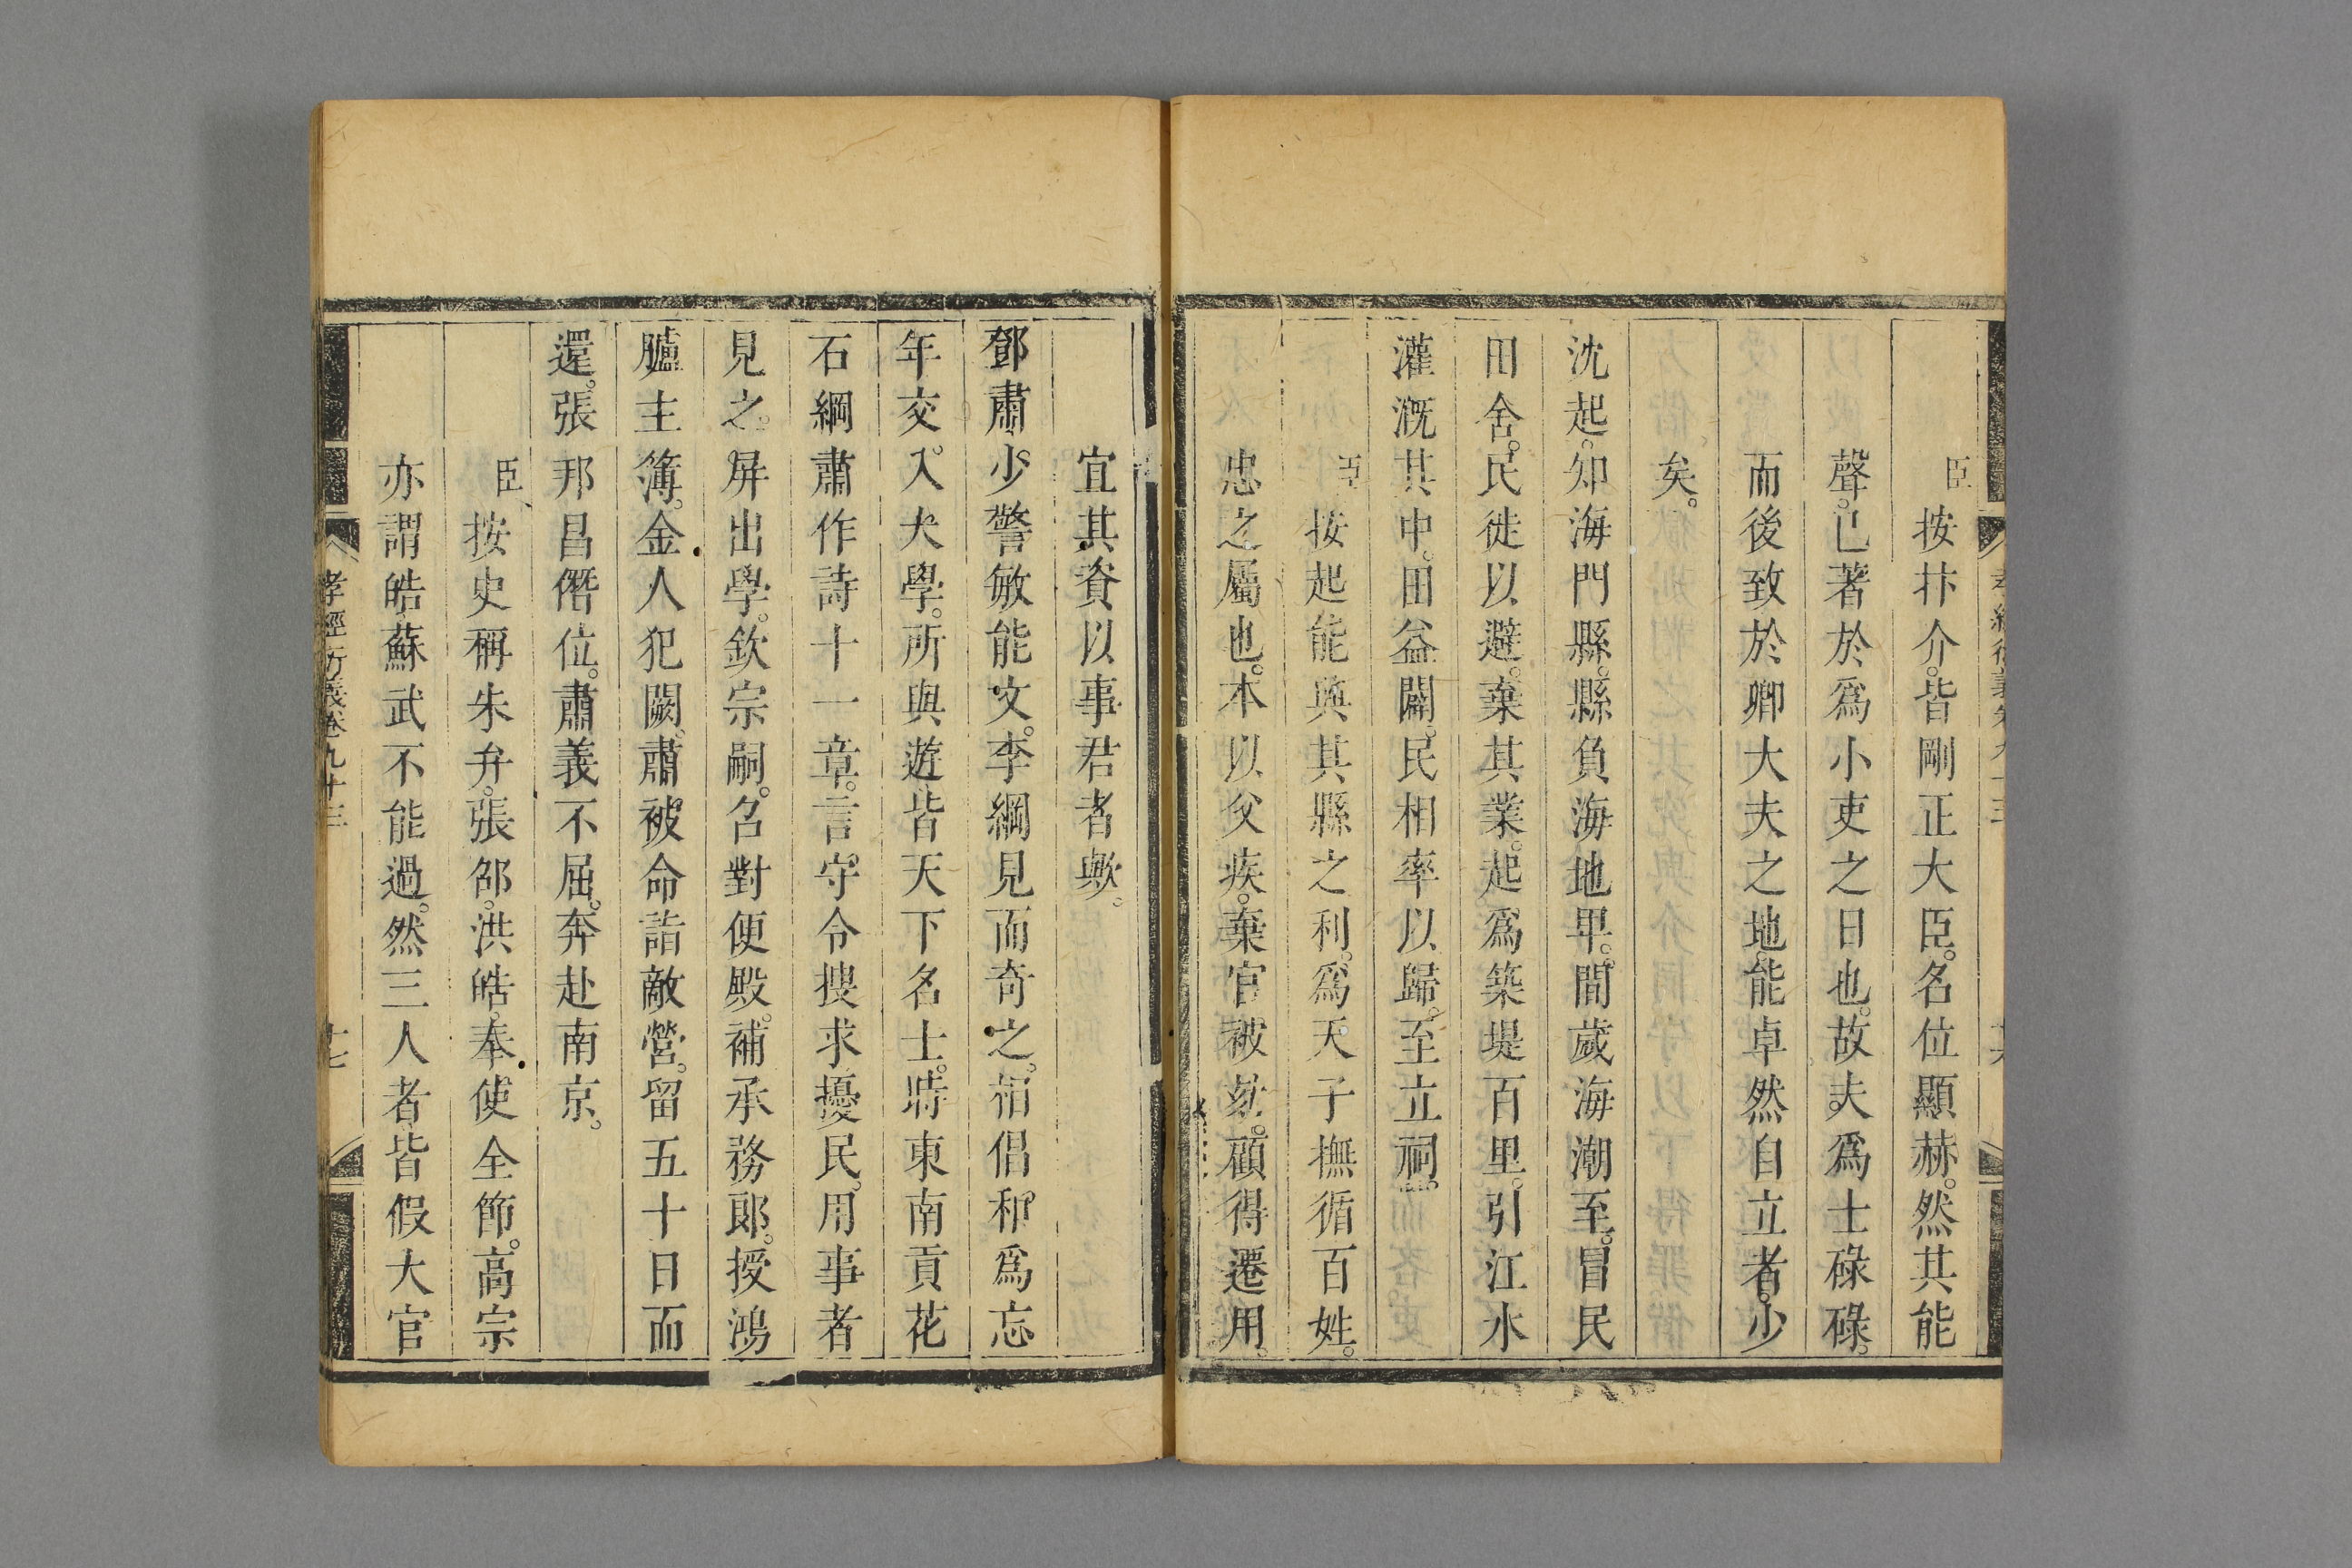 臣按抃介。皆剛正大臣。名位顯赫。然其能
聲。已著於爲小吏之日也。故夫爲士碌碌。
而後致於卿大夫之地。能卓然自立者。少
矣。
沈起。知海門縣。縣負海地卑。間歲海潮至。冒民
田舍。民徙以避。棄其業。起爲築堤百里。引江水
灌溉其中。田益闢。民相率以歸。至立祠。
臣按起能興其縣之利。爲天子撫循百姓。
忠之屬也。本以父疾。棄官被劾。顧得遷用。
宜其資以事君者歟。
鄧肅。少警敏能文。李綱見而奇之。相倡和。爲忘
年交。入太學。所與遊。皆天下名士。時東南貢花
石綱。肅作詩十一章。言守令搜求擾民。用事者
見之。屏出學。欽宗嗣。召對便殿。補承務郎。授鴻
臚主簿。金人犯闕。肅被命詣敵營。留五十日而
還。張邦昌僭位。肅義不屈。奔赴南京。
臣按史稱朱弁。張邵。洪皓。奉使全節。高宗
亦謂皓蘇武不能過。然三人者皆假大官
孝經衍義卷九十三
十七